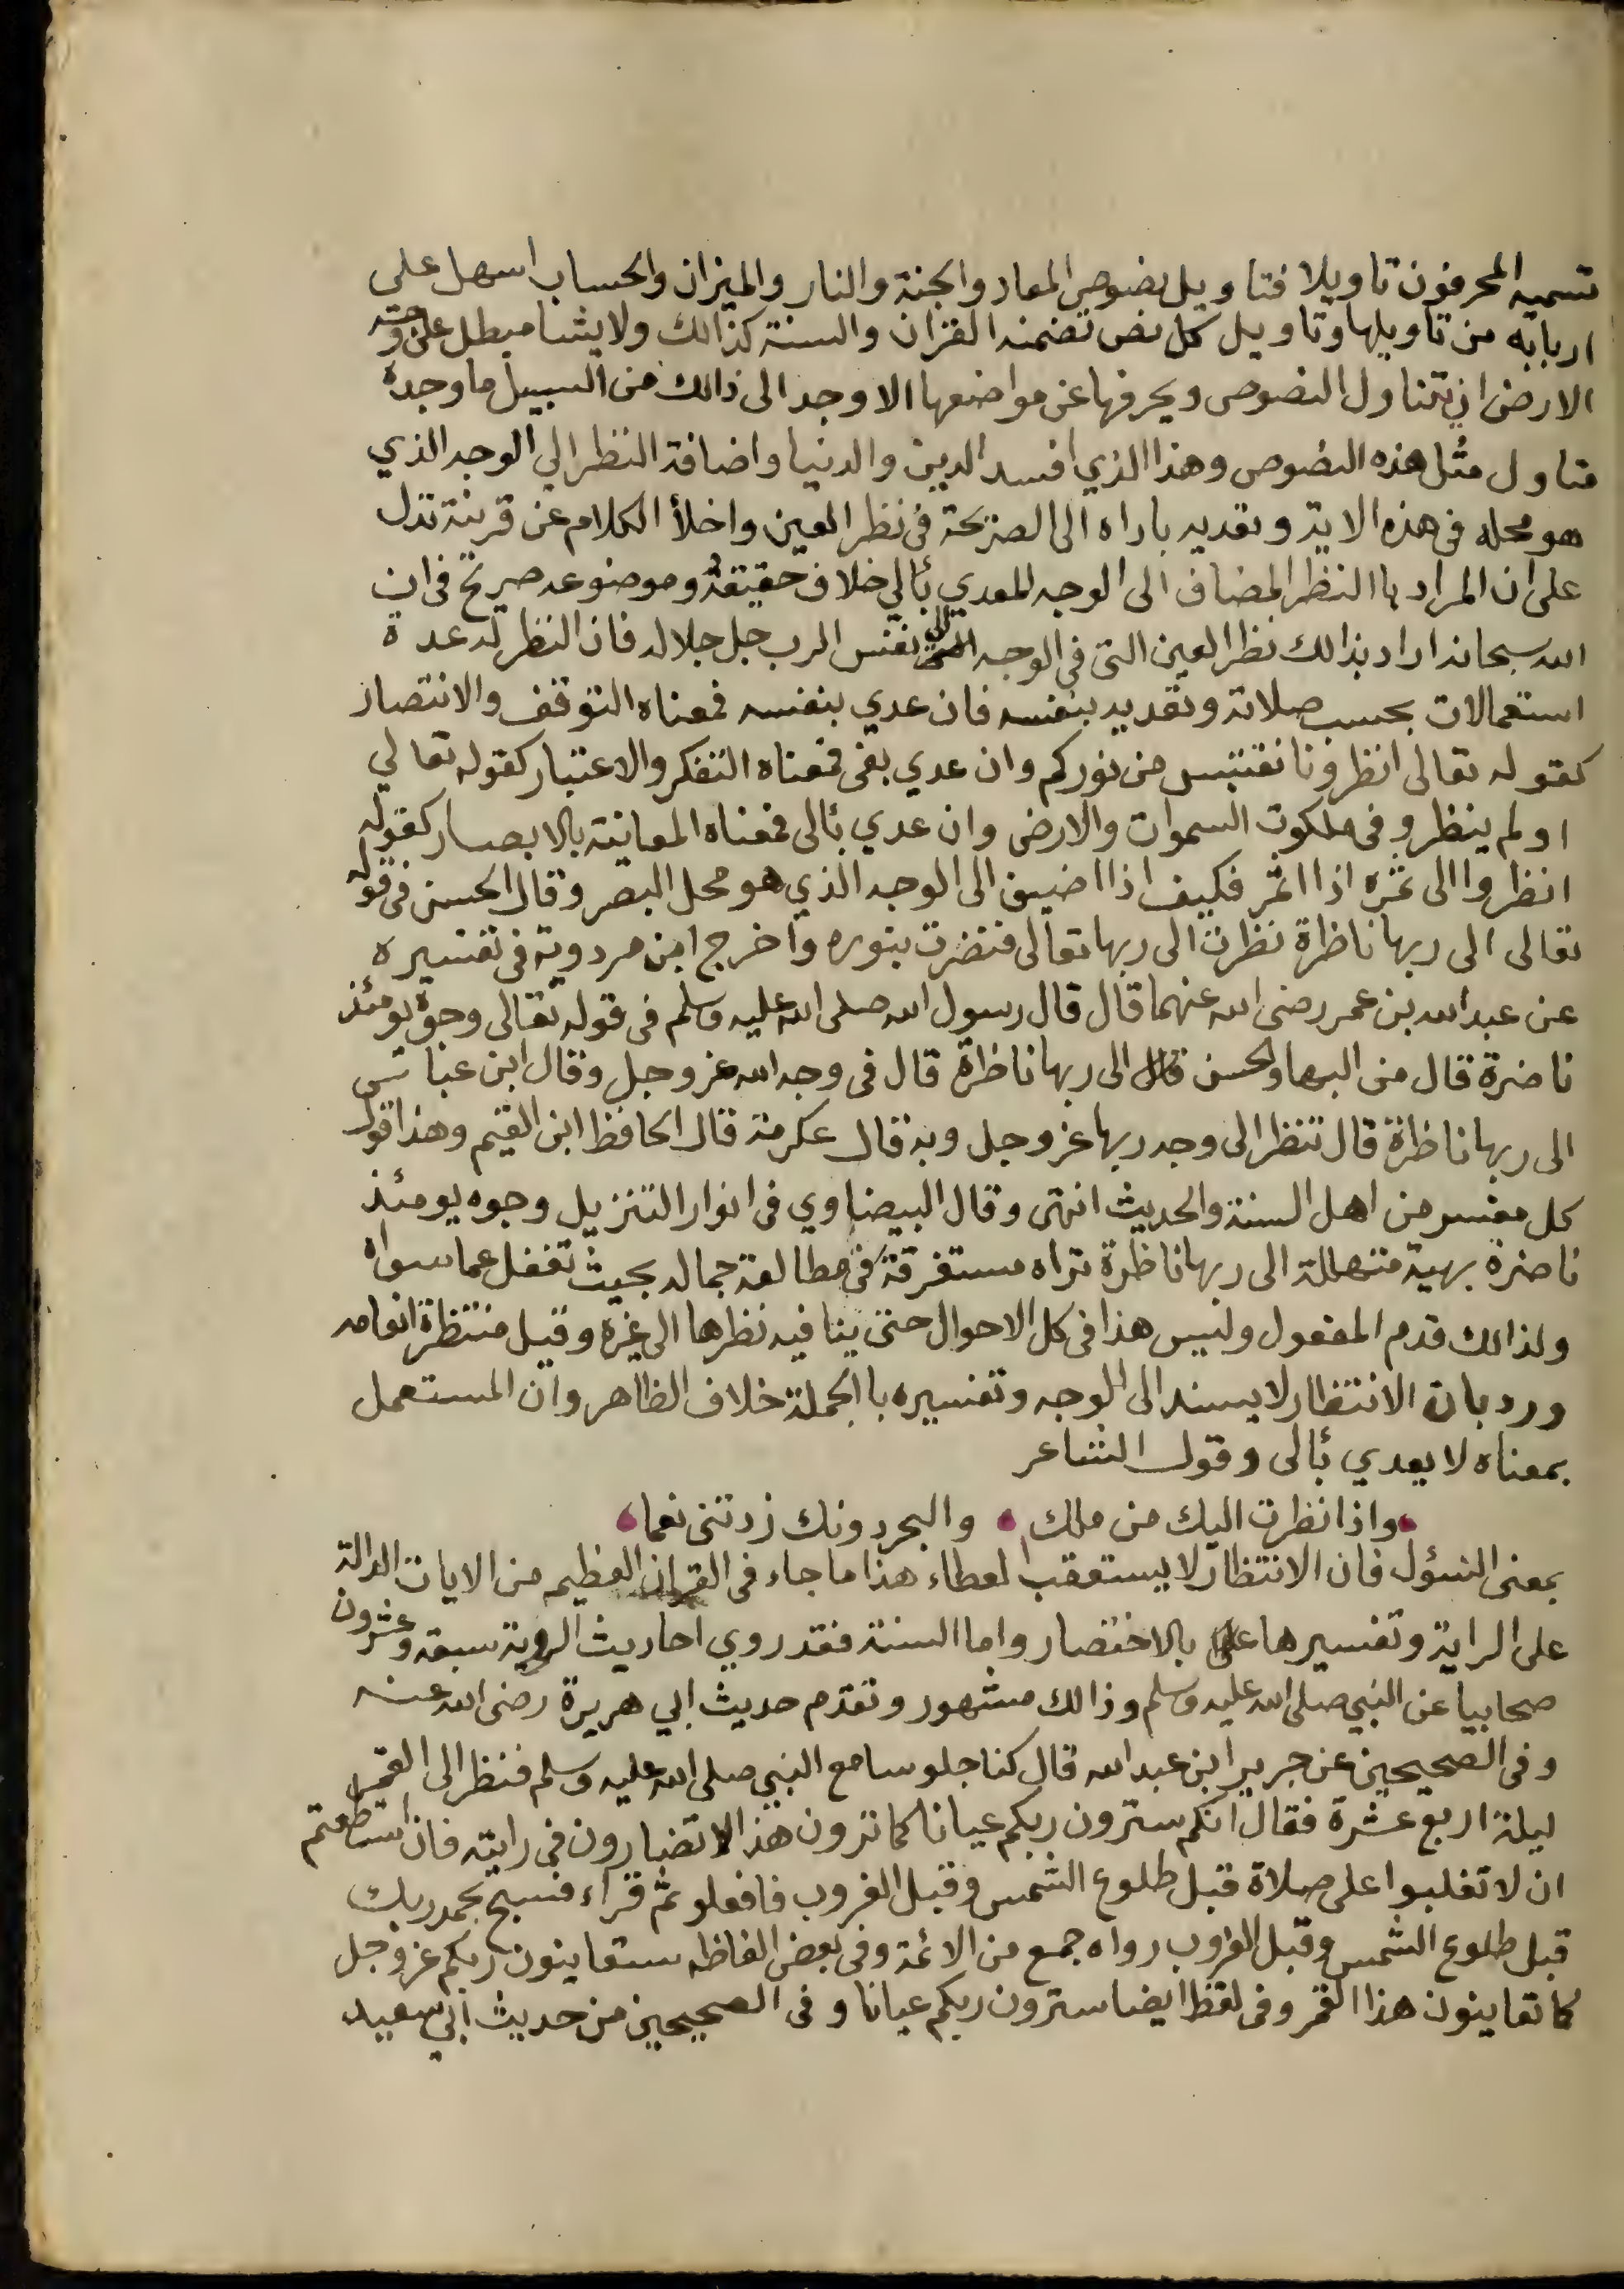 تسميه المحرفون تاويلا فتاويل نصوص المعاد والجنة والنار والميزان والحساب اسهل على
اربابه من تاويلها وتاويل كل نص تضمنه القران والسنة كذالك ولا يشا مبطل على وجه
الارض ان يتناول النصوص ويحرفها عن مواضعها الا وجد الى ذالك من السبيل ما وجده
متاول مثل هذه النصوص وهذا الذي افسد الدين والدنيا واضافة النظر الي الوجه الذي
هو محله في هذه الاية وتعديه باداه الى الصريحة في نظر العين واخلأ الكلام عن قرينة تدل
على ان المراد باالنظر المضاف الى الوجه المعدي بألي خلاف حقيقة وموضوعه صريح في ان
الله سبحانه اراد بذالك نظر العين التي في الوجه الى نفس الرب جل جلاله فان النظر له عدة
استعمالات بحسب صلاته وتعديه بنفسه فان عدي بنفسه فمعناه التوقف والانتصار
كقوله تعالى انظرونا نقتبس من نوركم وان عدي بفي فمعناه التفكر والاعتبار كقوله تعالي
اولم ينظرو في ملكوت السموات والارض وان عدي بألى فمعناه المعاينة بالابصار كقوله
انظروا الى ثمره اذا اثمر فكيف اذا اضيف الى الوجه الذي هو محل البصر وقال الحسن في قوله
تعالى الى ربها ناظرة نظرت الى ربها تعالى فنضرت بنوره واخرج ابن مردوية في تفسيره
عن عبدالله بن عمر رضي الله عنهما قال قال رسول الله صلى الله عليه وسلم في قوله تعالى وجوة يومئذ
ناضرة قال من البها والحسن قال الى ربها ناظرة قال في وجه الله عز وجل وقال ابن عباس
الى ربها ناظرة قال تنظر الى وجه ربها عز وجل وبه قال عكرمة قال الحافظ ابن القيم وهذا قول
كل مفسر من اهل السنة والحديث انتهى وقال البيضاوي في انوار التنزيل وجوه يومئذ
ناضرة بهية متهللة الى ربها ناظرة تراه مستغرقة في مطالعة جماله بحيث تغفل عما سواه
ولذالك قدم المفعول وليس هذا في كل الاحوال حتى ينافيه نظرها الى غيره وقيل منتظرة انعامه
ورد بان الانتظار لا يسند الى الوجه وتفسيره باالجملة خلاف الظاهر وان المستعمل
بمعناه لا يعدي بألى وقول الشاعر
واذا نظرت اليك من ملك والبحر دونك زدتني نعما
بمعنى السؤل فان الانتظار لا يستعقب العطاء هذا ما جاء في القران العظيم من الايات الدالة
على الراية وتفسيرها على بالاختصار واما السنة فقد روي احاديث الروية سبعة وعشرون
صحابيا عن النبي صلى الله عليه وسلم وذالك مشهور وتقدم حديث ابي هريرة رضي الله عنه
وفي الصحيحين عن جرير ابن عبدالله قال كنا جلوسا مع النبي صلى الله عليه وسلم فنظر الى القمر
ليلة اربع عشرة فقال انكم سترون ربكم عيانا كما ترون هذا لا تضارون في رايته فان استطعتم
ان لا تغلبوا على صلاة قبل طلوع الشمس وقبل الغروب فافعلو ثم قراء فسبح بحمد ربك
قبل طلوع الشمس وقبل الغروب رواه جمع من الائمة وفي بعض الفاظه ستعاينون ربكم عز وجل
كما تعاينون هذا القمر وفي لفظ ايضا سترون ربكم عيانا وفي الصحيحين من حديث ابي سعيد